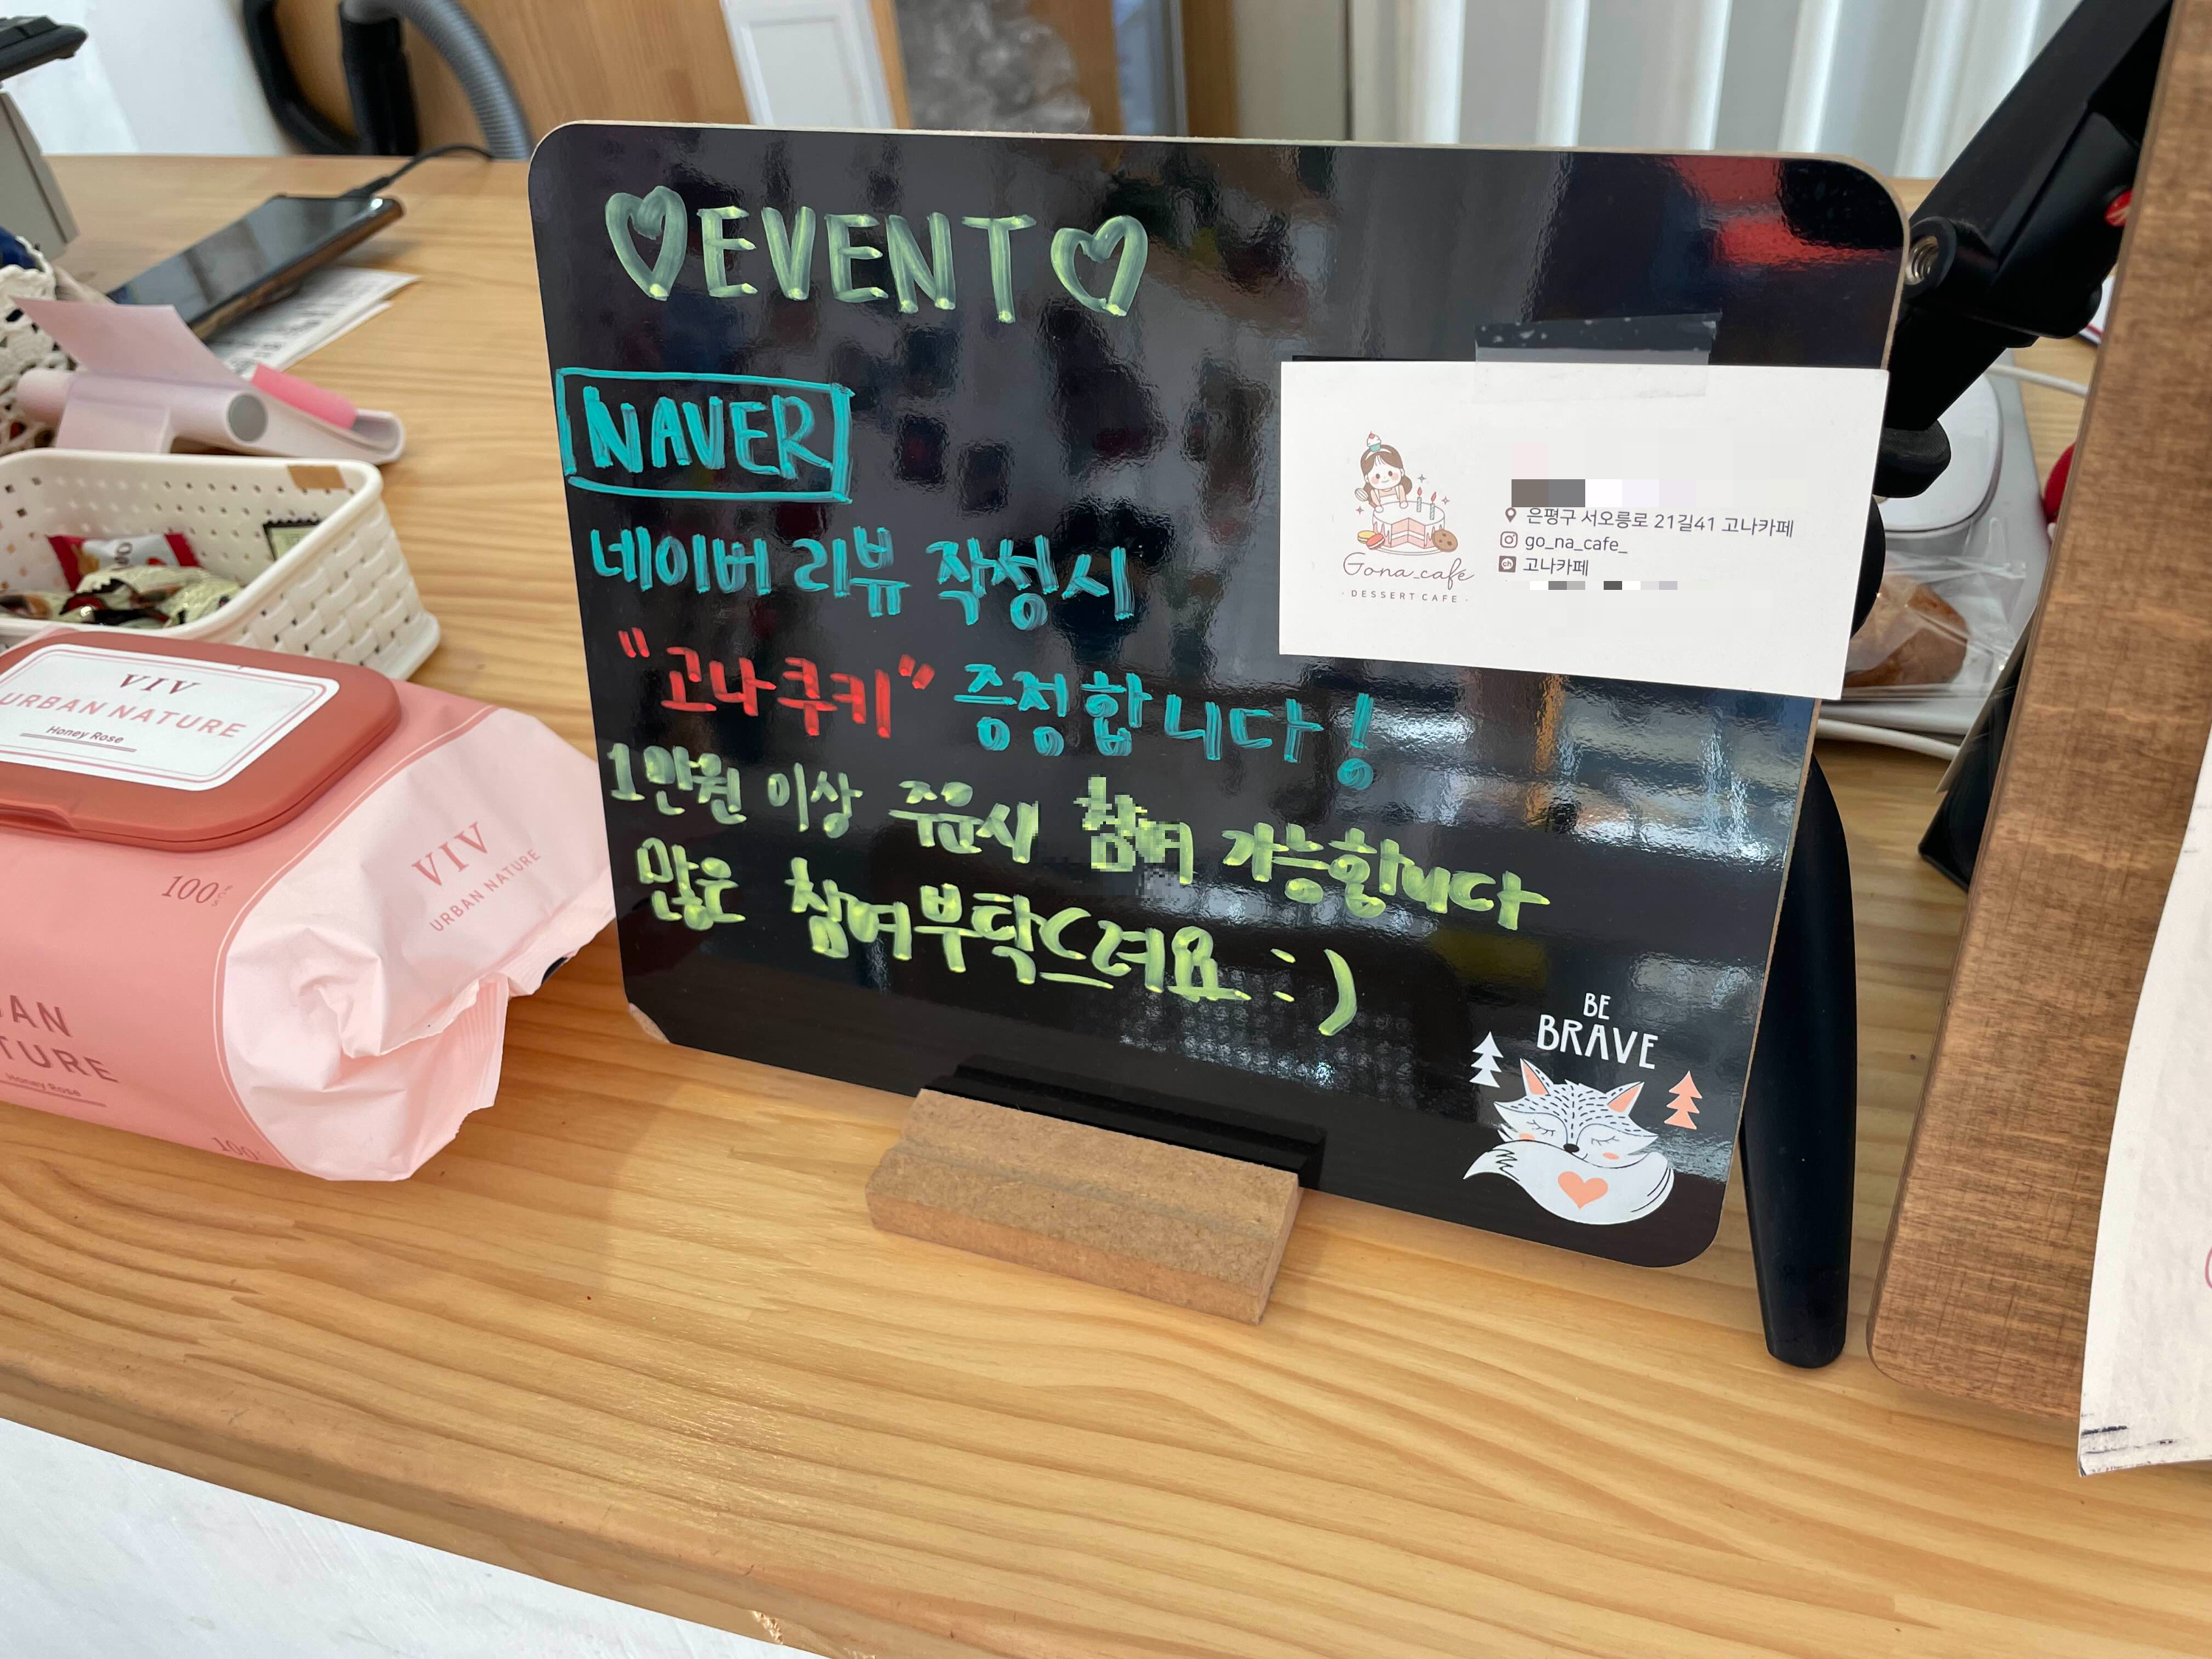 ♡EVENT♡
NAVER
네이버 리뷰 작성시
"고나쿠키"증정합니다!
1만원 이상 주문시 참여 가능합니다
많은 참여부탁드려요 :)
은평구 서오릉로 21길41 고나카페
go_na_cafe_
고나카페
Gona_café
· DESSERT CAFE ·
BE
BRAVE
VIV
URBAN NATURE
Honey Rose
VIV
URBAN NATURE
100
Honey Rose